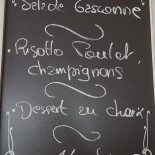 Salade Gasconne
Risotto Poulet,
champignons
Dessert au choix